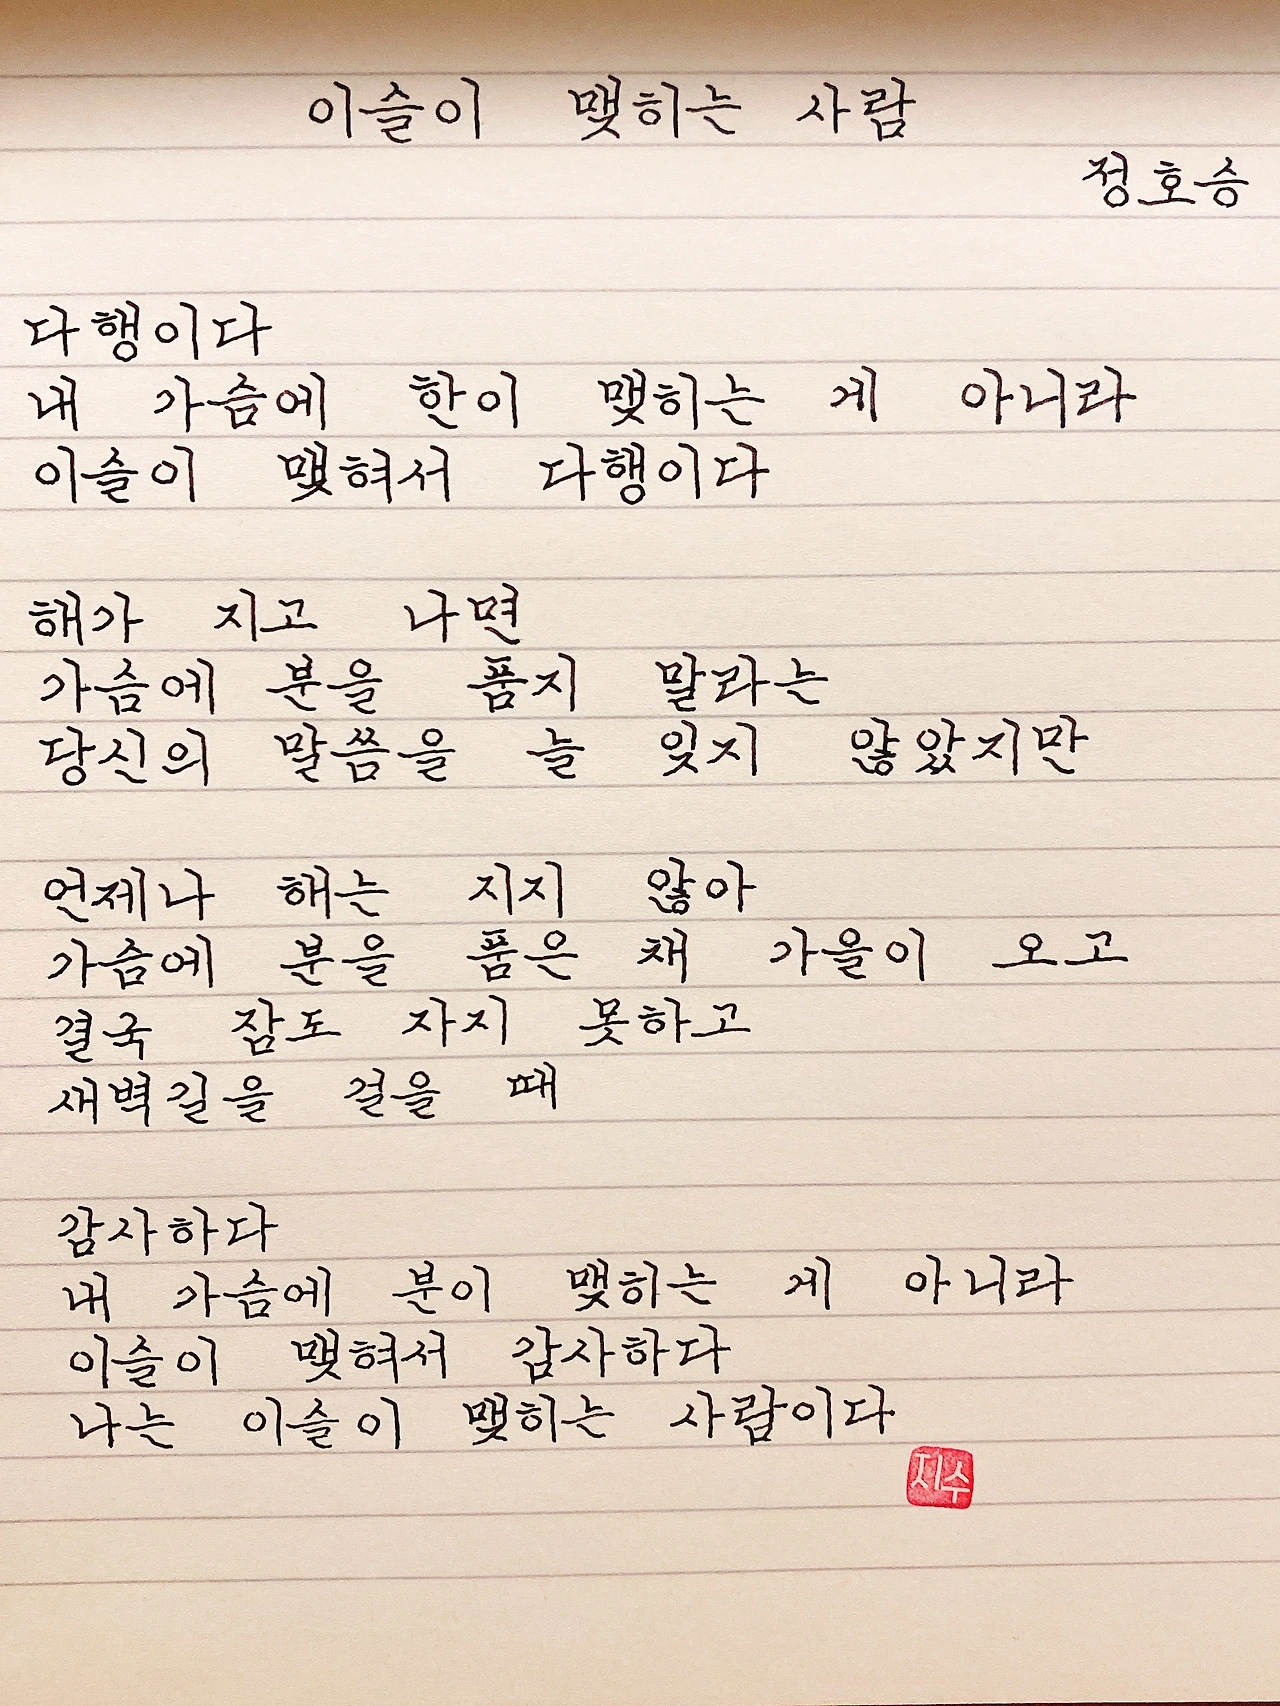 이슬이 맺히는 사람
정호승
다행이다
내 가슴에 한이 맺히는 게 아니라
이슬이 맺혀서 다행이다
해가 지고 나면
가슴에 분을 품지 말라는
당신의 말씀을 늘 잊지 않았지만
언제나 해는 지지 않아
가슴에 분을 품은 채 가을이 오고
결국 잠도 자지 못하고
새벽길을 걸을 때
감사하다
내 가슴에 분이 맺히는 게 아니라
이슬이 맺혀서 감사하다
나는 이슬이 맺히는 사람이다
지수